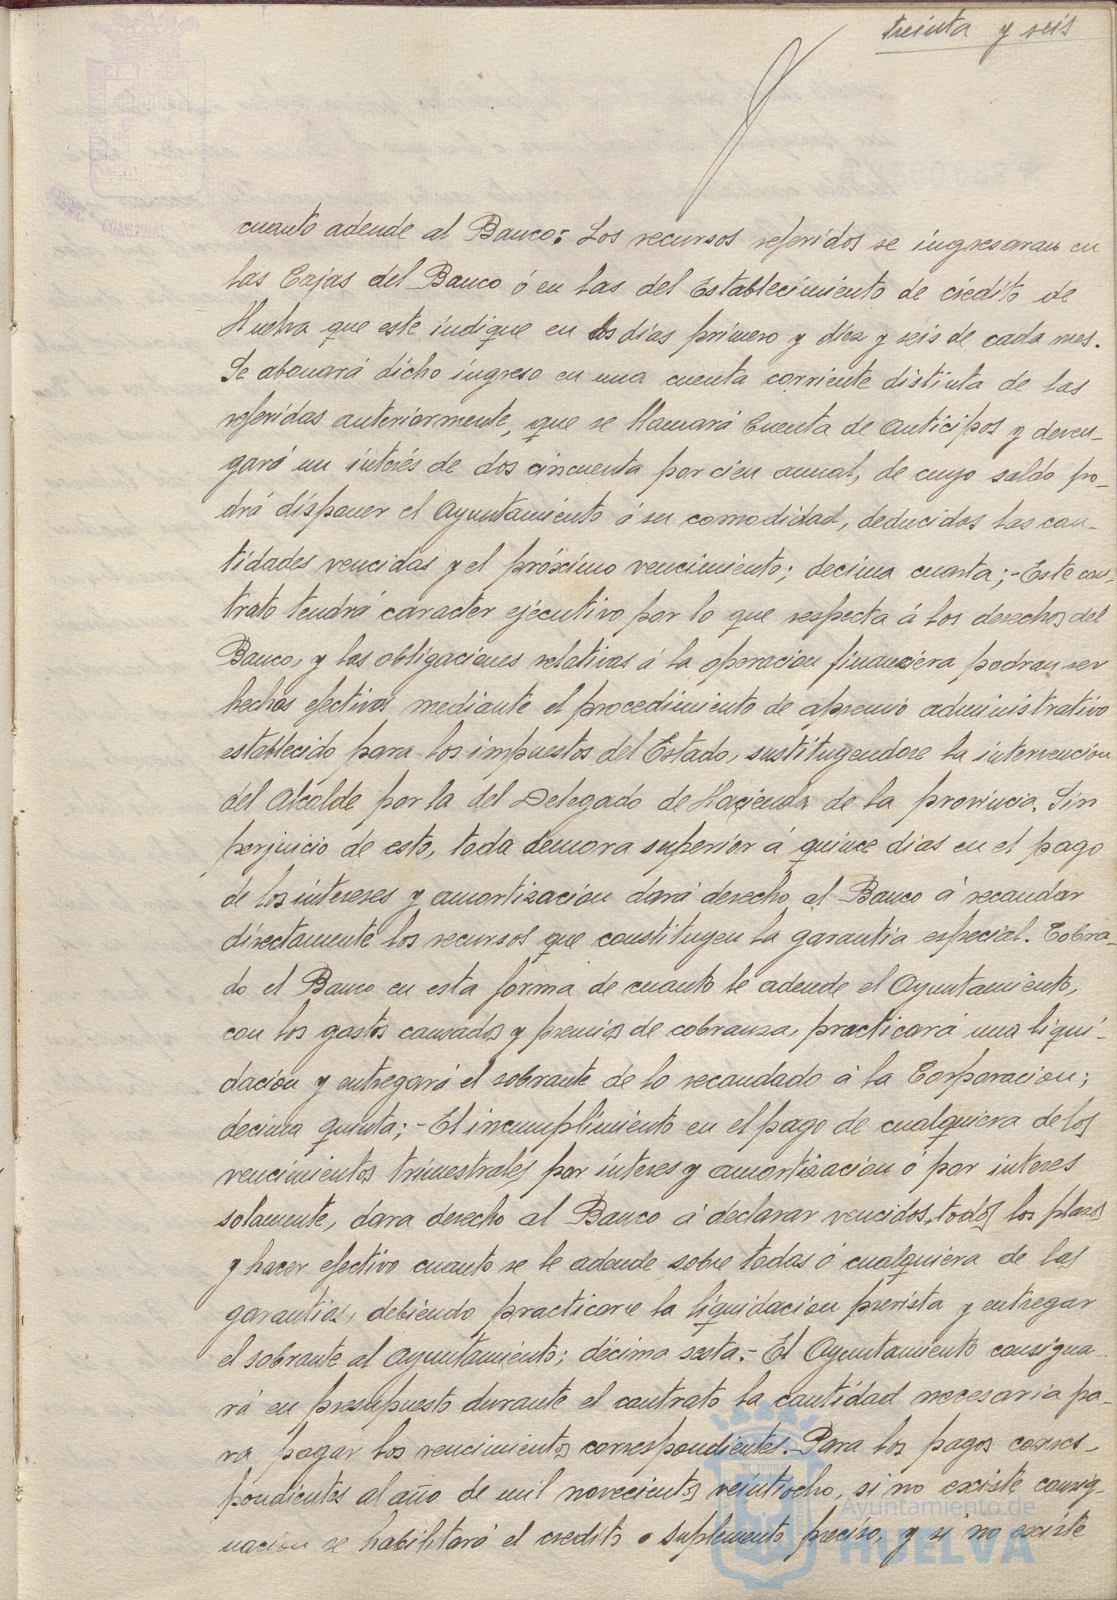 treinta y seis
cuanto adeude al Banco: Los recursos referidos se ingresaran en
las Cajas del Banco ó en las del Establecimiento de crédito de
Huelva que este indique en los días primero y diez y seis de cada mes.
Se abonará dicho ingreso en una cuenta corriente distinta de las
referidas anteriormente, que se llamará Cuenta de Anticipos y deven-
gará un interés de dos cincuenta por cien anual, de cuyo saldo po-
drá disponer el Ayuntamiento á su comodidad, deducidas las can-
tidades vencidas y el próximo vencimiento; decima cuarta;-Este con-
trato tendrá caracter ejecutivo por lo que respecta á los derechos del
Banco, y las obligaciones relativas á la operacion financiera podran ser
hechas efectivas mediante el procedimiento de apremio administrativo
establecido para los impuestos del Estado, sustituyendose la intervencion
del Alcalde por la del Delegado de Hacienda de la provincia. Sin
perjuicio de esto, toda demora superior á quince dias en el pago
de los intereses y amortizacion dará derecho al Banco á recaudar
directamente los recursos que constituyen la garantia especial. Cobra-
do el Banco en esta forma de cuanto le adeude el Ayuntamiento,
con los gastos causados y premios de cobranza, practicará una liqui-
dacion y entregará el sobrante de lo recaudado á la Corporacion;
decima quinta;-El incumplimiento en el pago de cualquiera de los
vencimientos trimestrales por interes y amortizacion ó por interes
solamente, dara derecho al Banco á declarar vencidos todos los plazos
y hacer efectivo cuanto se le adeude sobre todas ó cualquiera de las
garantias, debiendo practicarse la liquidacion prevista y entregar
el sobrante al Ayuntamiento; décima sexta.-El Ayuntamiento consigna
rá en presupuesto durante el contrato la cantidad necesaria pa-
ra pagar los vencimientos correspondientes.-Para los pagos corres-
pondientes al año de mil novecientos veintiocho, si no existe consig-
nacion se habilitará el credito o suplemento preciso, y si no existe
Ayuntamiento de
HUELVA